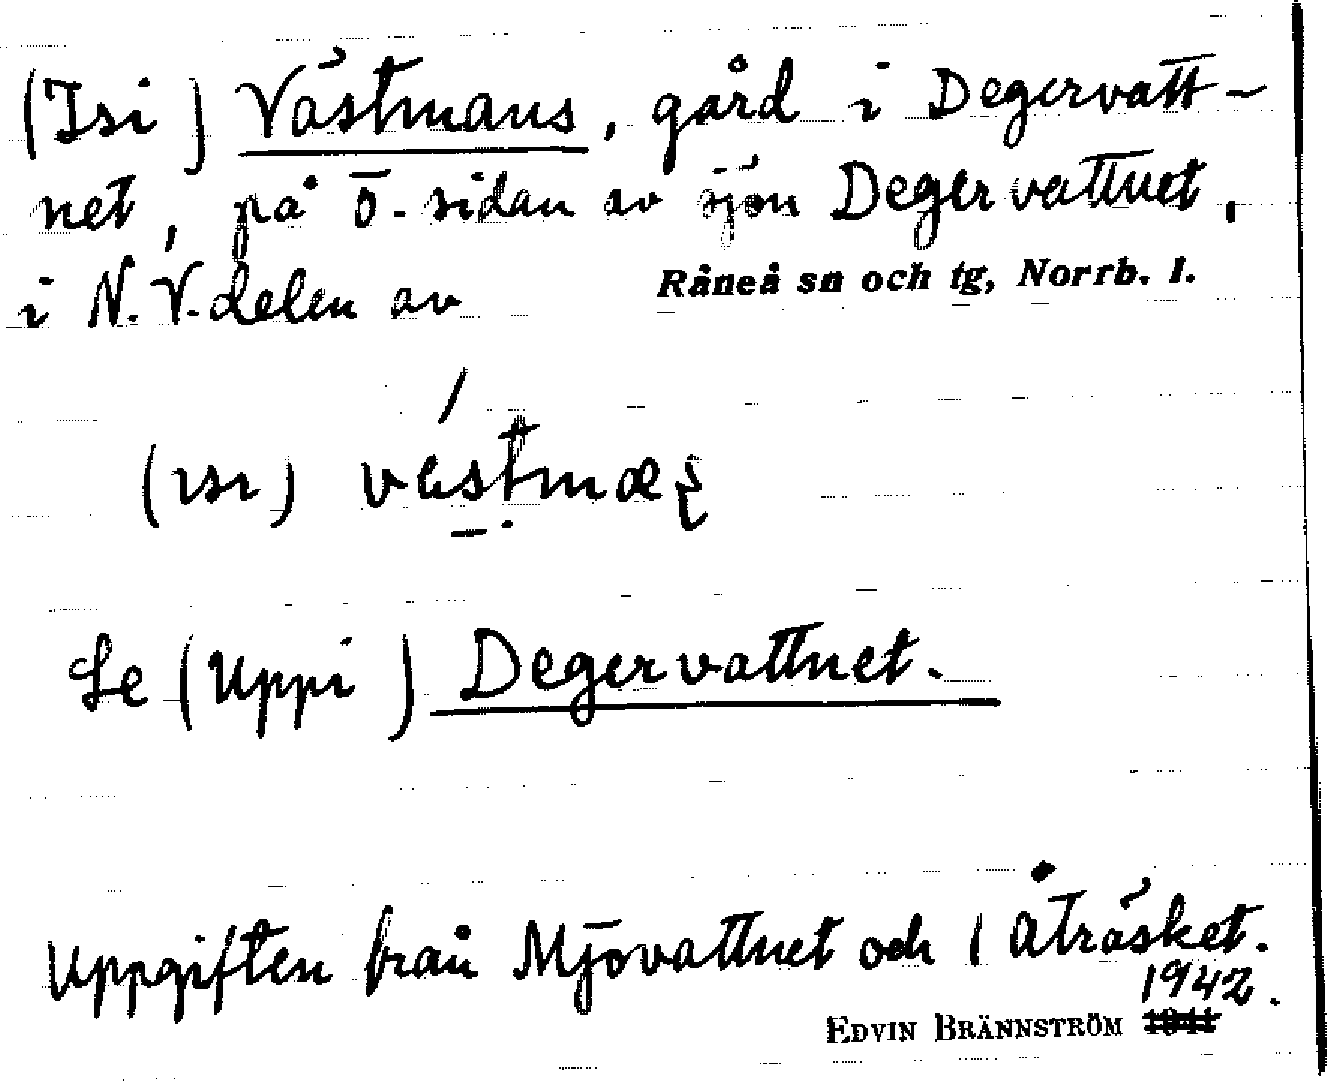 (Isi) Västmans, gård i Degervatt-
net, på ö-sidan av sjön Degervattnet,
i N.V.delen av Råneå sn och tg, Norrb. l.
(ısı)
Se (Uppi) Degervattnet.
Uppgiften från Mjövattnet och Åträsket.
1942.
EDVIN BRÄNNSTRÖM 1941